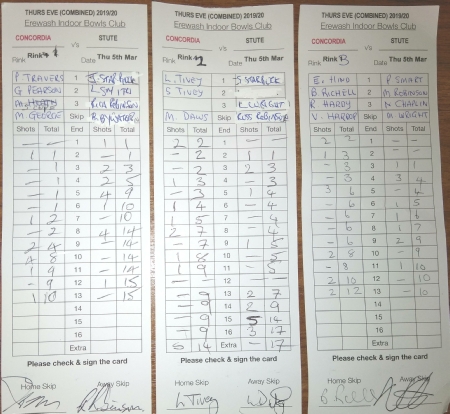 THURS EVE (COMBINED) 2019/20
Erewash Indoor Bowls Club
CONCORDIA v's STUTE
Rink Rink 1 Date Thu 5th Mar
P TRAVERS 1
G PEARSON 2
3 Russ Robinson
M GEORGE Skip
Shots Total End Shots Total
- - 1 1 1
1 1 2 - 1
- 1 3 2 3
- 1 4 2 5
- 1 5 4 9
- 1 6 1 10
1 2 7 - 10
- 2 8 4 14
2 4 9 - 14
4 8 10 - 14
1 9 11 - 14
- 9 12 1 15
1 10 13 - 15
14
15
16
Extra
Please check & sign the card
Home Skip Away Skip
THURS EVE (COMBINED) 2019/20
Erewash Indoor Bowls Club
CONCORDIA v's STUTE
Rink Rink 2 Date Thu 5th Mar
L. TIVEY 1
S TIVEY 2
3 L. WRIGHT
M. DAWS Skip Russ Robinson
Shots Total End Shots Total
2 2 1 - -
- 2 2 1 1
- 2 3 2 3
1 3 4 - 3
- 3 5 1 4
1 4 6 - 4
1 5 7 - 4
2 7 8 - 4
- 7 9 1 5
1 8 10 - 5
1 9 11 - 5
12
- 9 13 2 7
- 9 14 2 9
- 9 15 5 14
- 9 16 3 17
5 14 Extra - 17
Please check & sign the card
Home Skip Away Skip
L. Tivey
THURS EVE (COMBINED) 2019/20
Erewash Indoor Bowls Club
CONCORDIA v's STUTE
Rink Rink B Date Thu 5th Mar
E. HIND 1 P SMART
B RICHELL 2 M ROBINSON
R HARDY 3 N CHARLIN
V HARROP Skip D WRIGHT
Shots Total End Shots Total
2 2 1 - -
1 3 2 - -
- 3 3 1 1
- 3 4 3 4
3 6 5 - 4
- 6 6 1 5
- 6 7 1 6
- 6 8 1 7
- 6 9 2 9
2 8 10 - 9
- 8 11 1 10
2 10 12 - 10
2 12 13 - 10
14
15
16
Extra
Please check & sign the card
Home Skip Away Skip